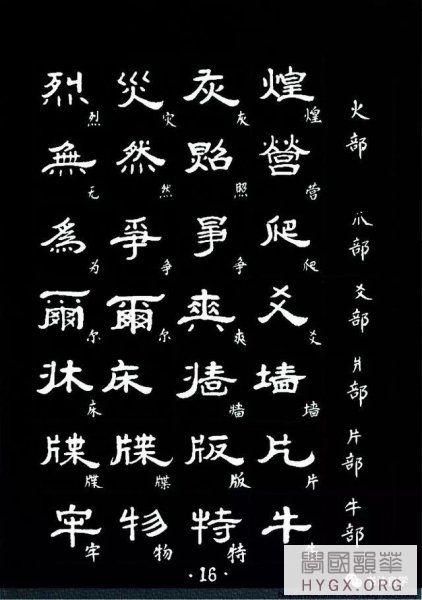 火部 煌 煌 灰 灰 災 灾 烈 烈
營 营 照 然 然 無 无
爪部 爬 爬 爭 争 争 為 为
爻部 爻 爻 爽 爽 爾 尔 爾 尔
爿部 墙 墙 墙 床 牀 床
片部 片 片 版 版 牒 牒 牒 牒
牛部 牛 特 特 物 物 牢 牢
·16·
學國韻華
HYGX.ORG